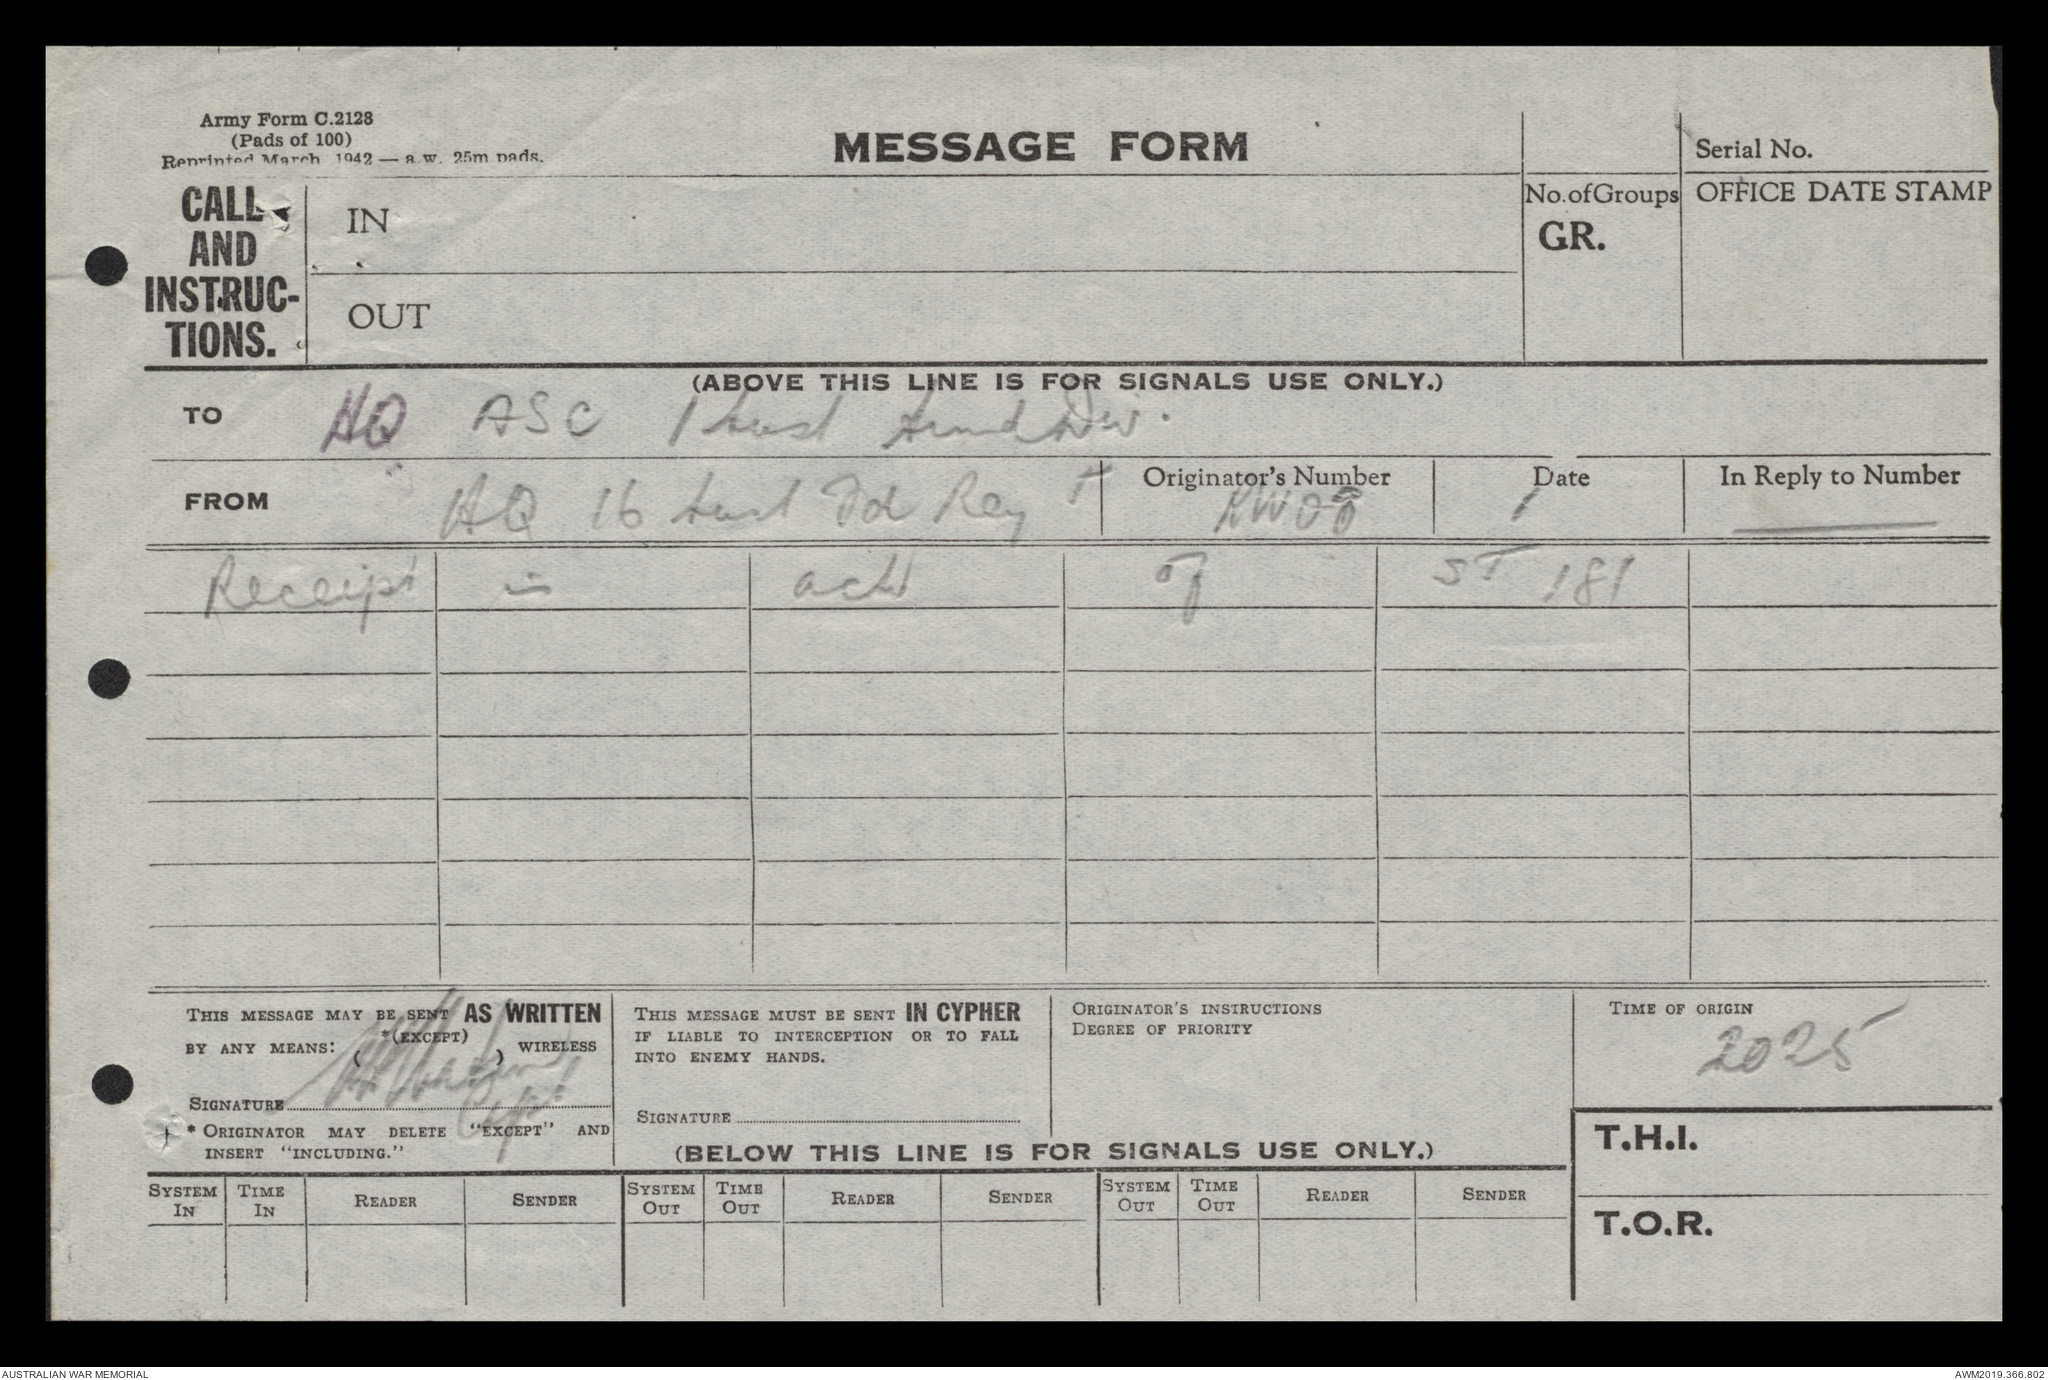 Army Form C.2128
(Pads of 100)
Reprinted March 1942 — a.w. 25m pads.
MESSAGE FORM
Serial No.
CALL
AND
INSTRUC-
TIONS.
IN
OUT
No. of Groups
GR.
OFFICE DATE STAMP
(ABOVE THIS LINE IS FOR SIGNALS USE ONLY.)
TO HQ ASC 1 Aust Armd Div.
FROM HQ 16 Aust Fd Regt
Originator's Number
Date 1
In Reply to Number
Receipt is ackd of ST 181
THIS MESSAGE MAY BE SENT AS WRITTEN
*(EXCEPT)
BY ANY MEANS: ( ) WIRELESS
SIGNATURE Capt
* ORIGINATOR MAY DELETE "EXCEPT" AND
INSERT "INCLUDING."
THIS MESSAGE MUST BE SENT IN CYPHER
IF LIABLE TO INTERCEPTION OR TO FALL
INTO ENEMY HANDS.
SIGNATURE
ORIGINATOR'S INSTRUCTIONS
DEGREE OF PRIORITY
TIME OF ORIGIN
2025
(BELOW THIS LINE IS FOR SIGNALS USE ONLY.)
T.H.I.
T.O.R.
SYSTEM IN TIME IN READER SENDER SYSTEM OUT TIME OUT READER SENDER SYSTEM OUT TIME OUT READER SENDER
AUSTRALIAN WAR MEMORIAL
AWM2019.366.802